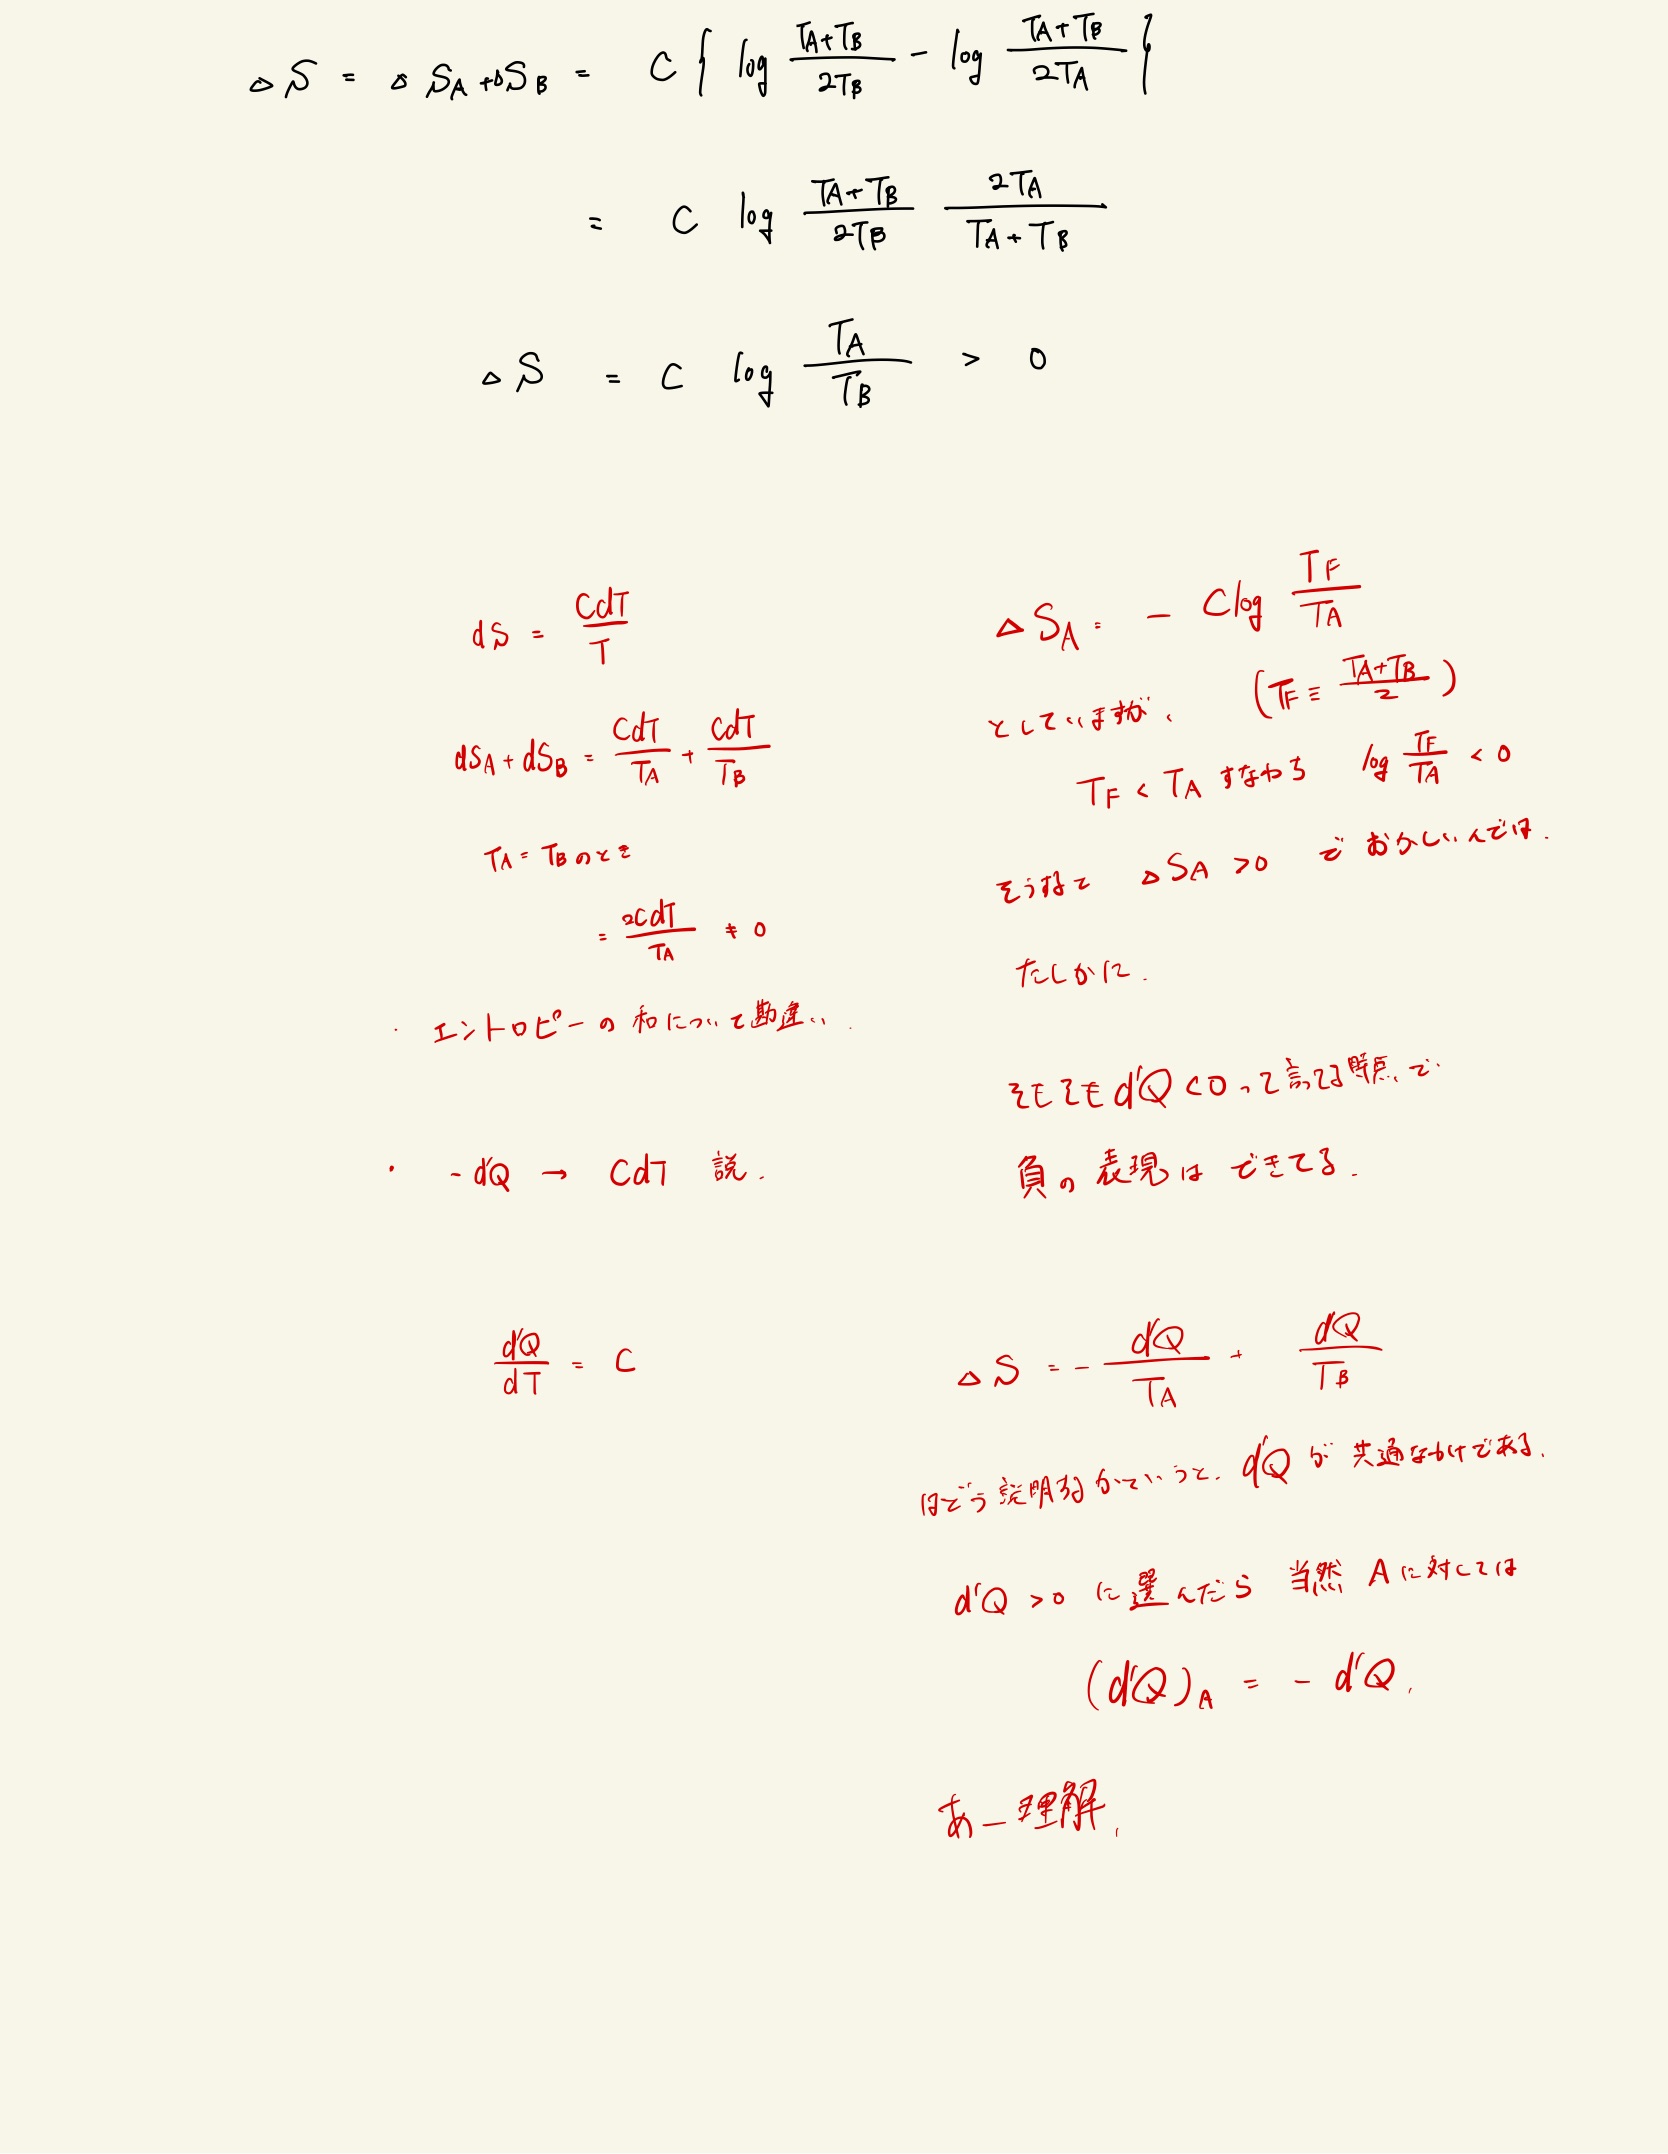 △S = △S_A + △S_B = C { log (T_A+T_B)/(2T_B) - log (T_A+T_B)/(2T_A) }
= C log (T_A+T_B)/(2T_B) (2T_A)/(T_A+T_B)
△S = C log T_A/T_B > 0
dS = CdT/T
dS_A + dS_B = CdT/T_A + CdT/T_B
T_A = T_B のとき
= 2CdT/T_A ≠ 0
・ エントロピーの和について勘違い.
・ -d'Q → CdT 説.
d'Q/dT = C
△S_A = - C log T_F/T_A
としていますが、 (T_F ≡ (T_A+T_B)/2)
T_F < T_A すなわち log T_F/T_A < 0
そうすると △S_A > 0 でおかしいんでは.
たしかに.
そもそも d'Q < 0 って言ってる時点で
負の表現はできてる.
△S = - d'Q/T_A + d'Q/T_B
はどう説明するかていうと. d'Q が共通なわけである.
d'Q > 0 に選んだら当然 A に対しては
(d'Q)_A = - d'Q.
あー理解.